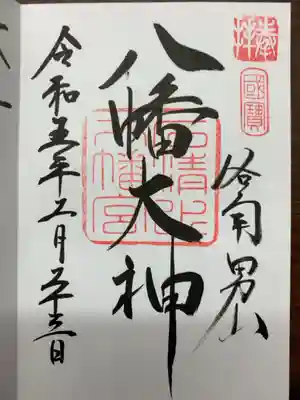 奉拝
國寶
洛南 男山
八幡大神
石清水
八幡宮
令和五年二月二十三日